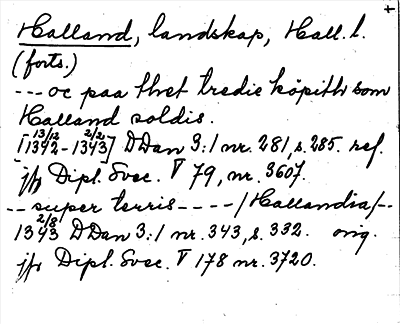 Halland, landskap, Hall. l.
(forts.)
--- oc paa thet tredie köpith som
Halland soldis.
[13/12 1342 - 2/2 1343] DDan 3:1 nr. 281, s. 285. ref.
jfr Dipl. Svec. V 79, nr. 3607.
-- super terris ---- /Hallandia/--
2/8 1343 DDan 3:1 nr. 343, s. 332. orig.
jfr Dipl. Svec. V 178 nr. 3720.